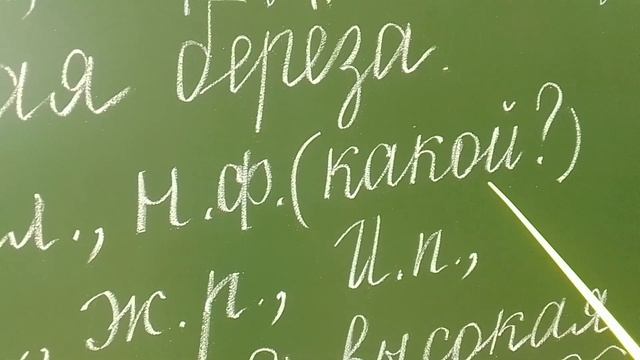 ая береза.
л., Н.ф.(какой?)
ж.р., И.п.,
высокая